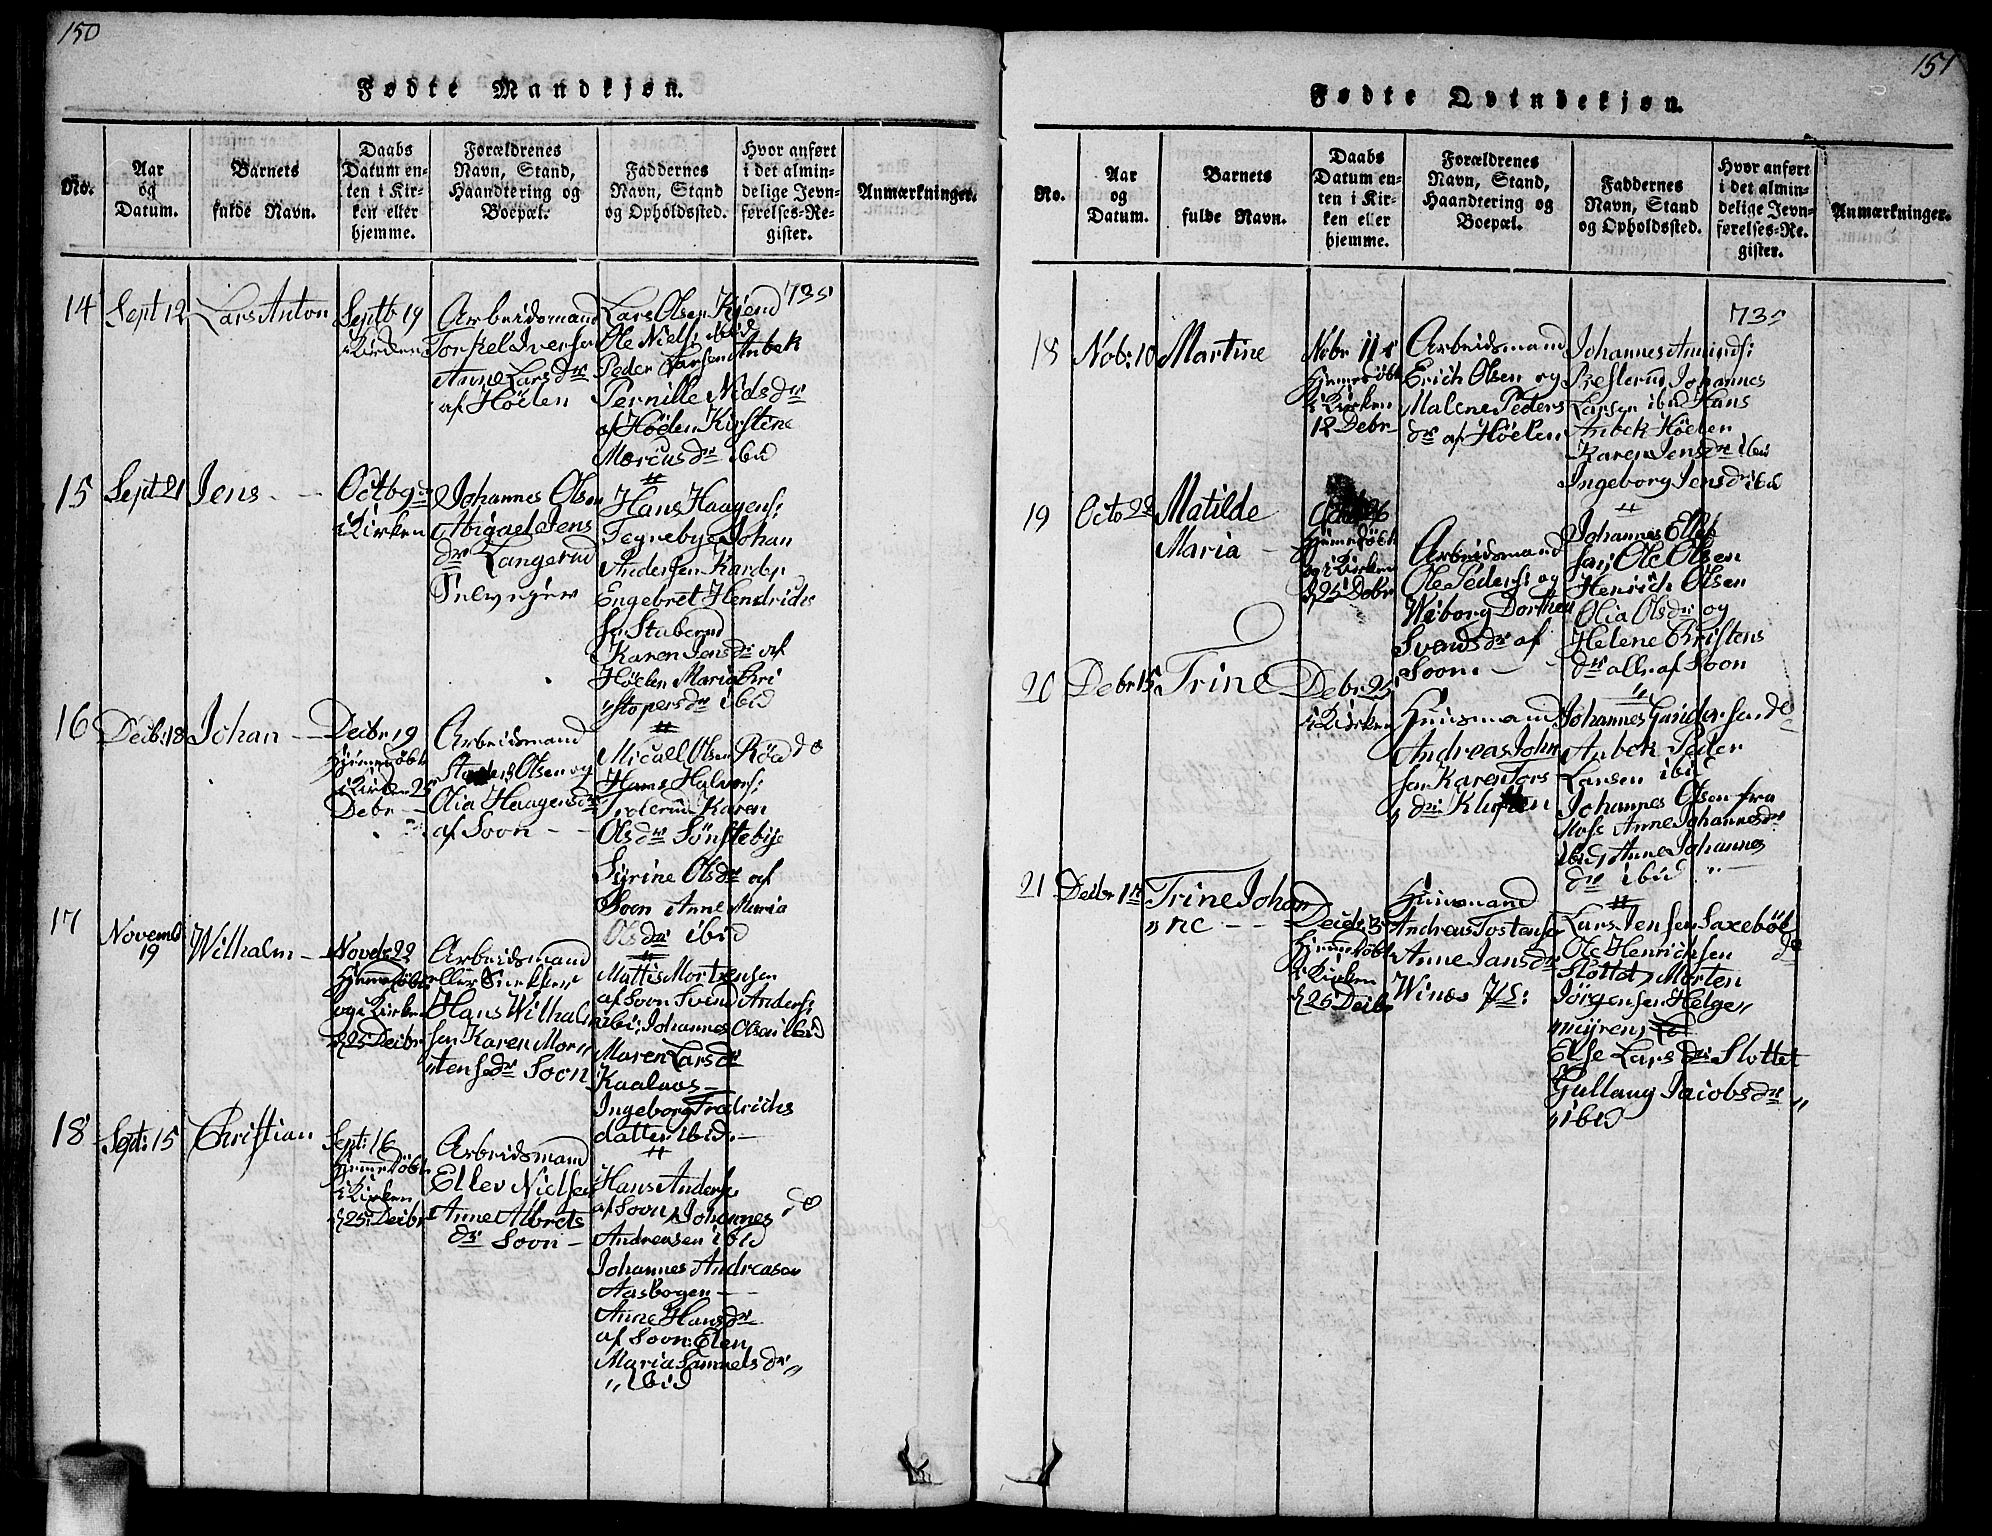 150
Fødte Mandkjøn.
No.
Aar
og
Datum.
Barnets
fulde Navn.
Daabs
Datum en-
ten i Kir-
ken eller
hjemme.
Forældrenes
Navn, Stand,
Haandtering og
Boepæl.
Faddernes
Navn, Stand
og Opholdssted.
Hvor anført
i det almin-
delige Jevn-
førelses-Re-
gister.
Anmærkninger.
14
Sept 12
Lars Anton
Septb 19
i Kirken
Arbeidsmand
Torkel Iversen
Anne Larsdr
af Höelen
Lars Olsen Kjend
Ole Niels: ibid
Peder Larsen Anbek
Pernille Nidsdr
af Höelen Kirstine
Morcusdr ibid
735
15
Sept 21
Jens
Octb 9
i Kirken
Johannes Olsen
Abigael Jens
dr Langerud
Hans Haagens:
Tegnebye Johan
Andersen Kardp
Engebret Hendrichs
Stuberud
Karen Jensdr af
Höelen Maria Chri
stopersdr ibid
16
Deib: 18
Johan
Deibr 19
Hiemedöbt
i Kirken 25
Debr
Arbeidsmand
Olsen og
Olia Haagensdr
af Soon
Micall Olsen Röed
Hans Halvors:
Karen
Olsdr Sönstebye
Sirine Olsdr af
Soon Anne Maria
Olsdr ibid
do
17
Novemb
19
Wilhalm
Novebr 22
Hiemedöbt
og i Kirken
d 25 Deibr
Arbeidsmand
eller
Hans Wilhalm
sen Karen Mor
tensdr Soon
Mattis Mortensen
af Soon Svend Anders:
ibi: Johannes Olsen ibid
Maren Larsdr
Ingeborg Fredrichs
datter ibid
18
Sept: 15
Christian
Sept: 16
Hiemmedöbt
i Kirken
d 25 Deibr
Arbeidsmand
Ellev Nielsen
Anne Albrets
dr Soon
Hans Anders
af Soon Johannes
Andreasen ibid
Johannes Andreasen
Aasbogen
Anne Hansdr
af Soon Elen
Maria Samuelsdr
ibid
do
151
Fødte Qvindekjøn.
No.
Aar
og
Datum.
Barnets
fulde Navn.
Daabs
Datum en-
ten i Kir-
ken eller
hjemme.
Forældrenes
Navn, Stand,
Haandtering og
Boepæl.
Faddernes
Navn, Stand
og Opholdssted.
Hvor anført
i det almin-
delige Jevn-
førelses-Re-
gister.
Anmærkninger.
18
Nob: 10
Martine
Nobr 11
Hjemedöbt
i Kirken
12 Debr
Arbeidsmand
Erich Olsen og
Malene Peders
dr af Höelen
Johannes Amunds:
Presterud Johannes
Larsen ibid Hans
Anbek Höelen
Karen Jensdr ibid
Ingeborg Jensdr ibid
735
19
Octo 22
Matilde
Maria
Hjemedöbt
og i Kirken
d 25 Debr
Arbeidsmand
Ole Peders: og
Wiborg Dorthea
Svendsdr af
Soon
Johannes Ellef
sen Ole Olsen
Henrich Olsen
Olia Olsdr og
Helene Christens
dr alle af Soon
20
Debr 15
Trine
Debr 25
i Kirken
Huusmand
Andreas John
sen Karen Tors
dr Kluften
Johannes Gundersen
Anbek Peder
Larsen ibid
Johannes Olsen fra
Moss Anne Johannesdr
ibid Anne Johannes
dr ibid
do
21
Deibr 1
Trine Johan
ne
Deibr 3
Hiemedöbt
i Kirken
d 26 Deibr
Huusmand
Andreas Tostensen
Anne Jansdr
Lars Jensen Saxeböl
Ole Henrichsen
Slottet Morten
Jörgensen Helge
myren
Else Larsdr Slottet
Gullaug Jacobsdr
ibid
do